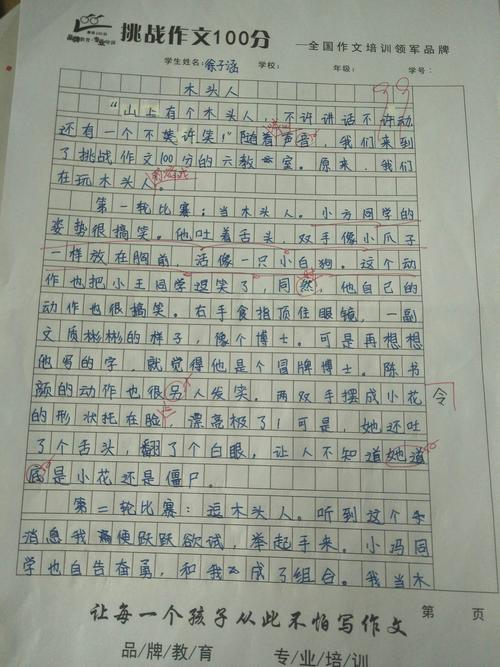 挑战作文100分
—全国作文培训领军品牌
品牌教育·专业培训
学生姓名:徐子涵 学校: 年级: 学号:
99
木头人
“山上有个木头人,不许讲话不许动
还有一个不许笑!”随着声音,我们来到
了挑战作文100分的六教室。原来,我们
在玩木头人。
的游戏
第一轮比赛:当木头人。小方同学的
姿势很搞笑。他吐着舌头,双手像小爪子
一样放在胸前,活像一只小白狗。这个动
作也把小王同学逗笑了,同然,他自己的
动作也很搞笑。右手食指顶住眼镜,一副
文质彬彬的样子,像个博士。可是再想想
他写的字,就觉得他是个冒牌博士。陈书
颜的动作也很另人发笑。两双手摆成小花
令
的形状托在脸,漂亮极了!可是,她还吐
了个舌头,翻了个白眼。让人不知道她道
底是小花还是僵尸。
第二轮比赛:逗木头人。听到这个
消息我便跃跃欲试,举起手来。小冯同
学也自告奋勇,和我成了组合。我当木
让每一个孩子从此不怕写作文
第 页
品/牌/教/育 专/业/培/训